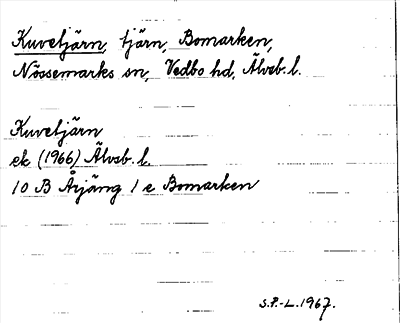 Kuvetjärn, tjärn, Bomarken,
Nössemarks sn, Vedbo hd, Älvsb. l.
Kuvetjärn
ek (1966) Älvsb. l.
10 B Årjäng 1 e Bomarken
S.P.-L. 1967.